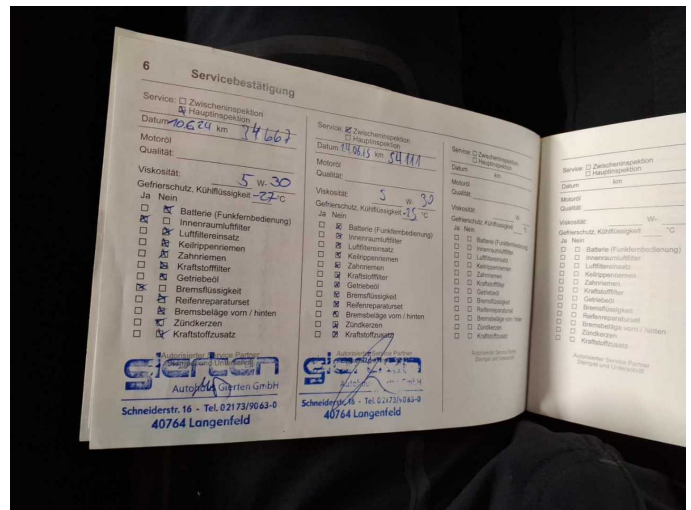 6 Servicebestätigung
Service: Zwischeninspektion
Hauptinspektion
Datum 10.6.24 km 34667
Motoröl
Qualität:
Viskosität: 5 W- 30
Gefrierschutz, Kühlflüssigkeit -27 °C
Ja Nein
Batterie (Funkfernbedienung)
Innenraumluftfilter
Luftfiltereinsatz
Keilrippenriemen
Zahnriemen
Kraftstofffilter
Getriebeöl
Bremsflüssigkeit
Reifenreparaturset
Bremsbeläge vorn / hinten
Zündkerzen
Kraftstoffzusatz
Autorisierter Service Partner
Stempel und Unterschrift
Autohaus Gierten GmbH
Schneiderstr. 16 - Tel. 02173/9063-0
40764 Langenfeld
Service: Zwischeninspektion
Hauptinspektion
Datum km 54111
Motoröl
Qualität:
Viskosität: 5 W 30
Gefrierschutz, Kühlflüssigkeit °C
Ja Nein
Batterie (Funkfernbedienung)
Innenraumluftfilter
Luftfiltereinsatz
Keilrippenriemen
Zahnriemen
Kraftstofffilter
Getriebeöl
Bremsflüssigkeit
Reifenreparaturset
Bremsbeläge vorn / hinten
Zündkerzen
Kraftstoffzusatz
Autorisierter Service Partner
Schneiderstr. 16 - Tel. 02173/9063-0
40764 Langenfeld
Service: Zwischeninspektion
Hauptinspektion
Datum km
Motoröl
Qualität:
Viskosität: W-
Gefrierschutz, Kühlflüssigkeit °C
Ja Nein
Batterie (Funkfernbedienung)
Innenraumluftfilter
Luftfiltereinsatz
Keilrippenriemen
Zahnriemen
Kraftstofffilter
Getriebeöl
Bremsflüssigkeit
Reifenreparaturset
Bremsbeläge vorn / hinten
Zündkerzen
Kraftstoffzusatz
Autorisierter Service Partner
Stempel und Unterschrift
Service: Zwischeninspektion
Hauptinspektion
Datum km
Motoröl
Qualität:
Viskosität: W-
Gefrierschutz, Kühlflüssigkeit °C
Ja Nein
Batterie (Funkfernbedienung)
Innenraumluftfilter
Luftfiltereinsatz
Keilrippenriemen
Zahnriemen
Kraftstofffilter
Getriebeöl
Bremsflüssigkeit
Reifenreparaturset
Bremsbeläge vorn / hinten
Zündkerzen
Kraftstoffzusatz
Autorisierter Service Partner
Stempel und Unterschrift